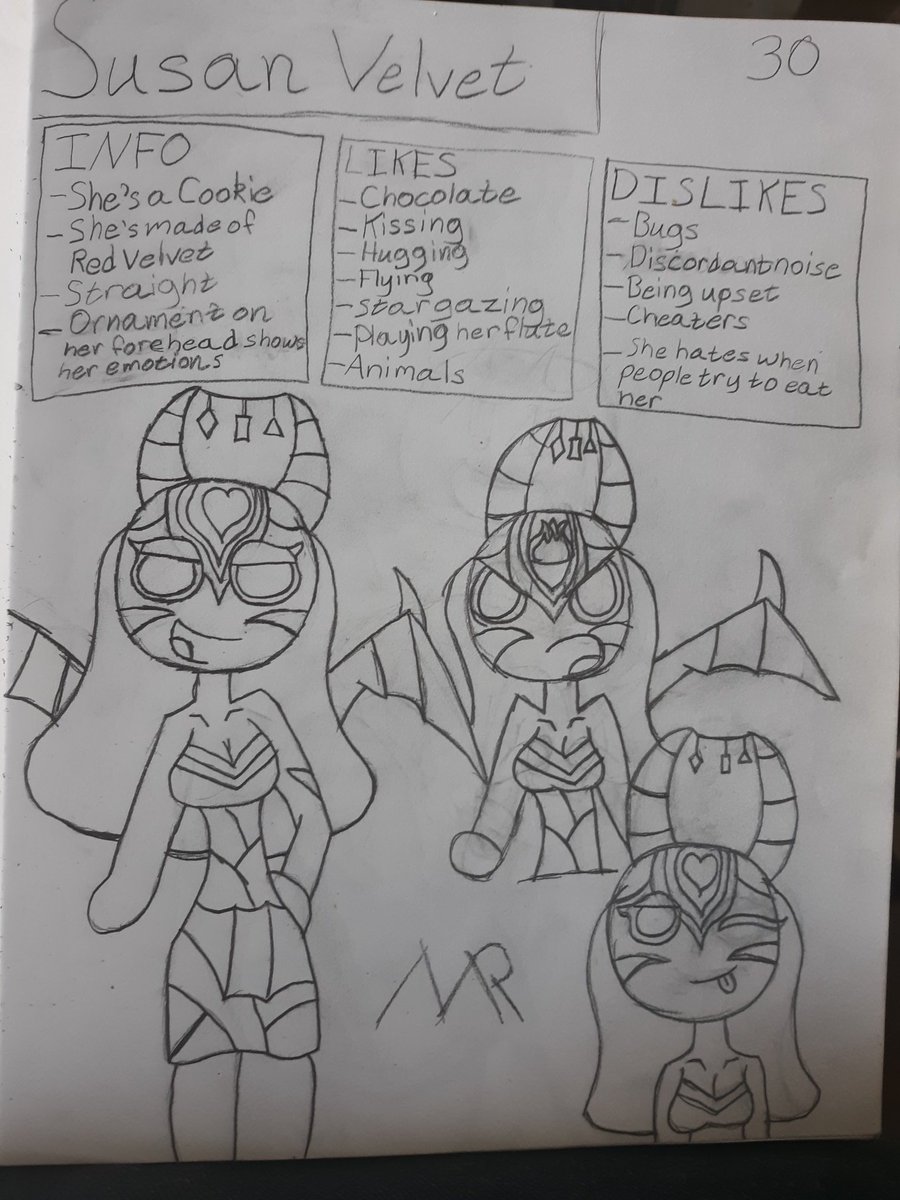 Susan Velvet
30
INFO
-She's a Cookie
-She's made of
Red Velvet
-Straight
-Ornament on
her forehead shows
her emotions
LIKES
-Chocolate
-Kissing
-Hugging
-Flying
-Stargazing
-Playing her flute
-Animals
DISLIKES
-Bugs
-Discordant noise
-Being upset
-Cheaters
-She hates when
people try to eat
her
MR